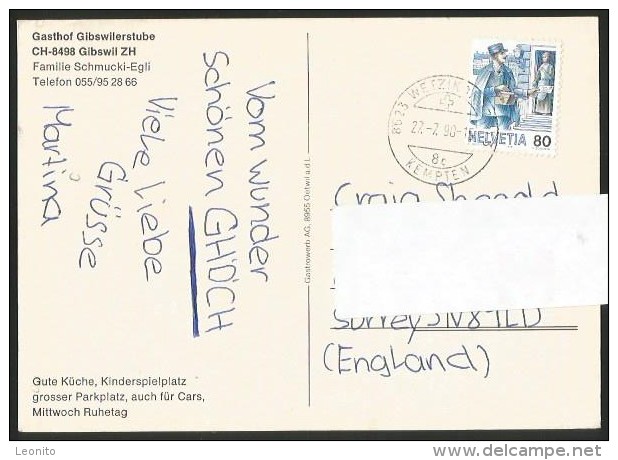 Gasthof Gibswilerstube
CH-8498 Gibswil ZH
Familie Schmucki-Egli
Telefon 055/95 28 66
Vom wunder
schönen GHÖCH
Viele liebe
Grüsse
Martina
Gute Küche, Kinderspielplatz
grosser Parkplatz, auch für Cars,
Mittwoch Ruhetag
Gastrowerb AG, 8955 Oetwil a.d.L.
8623
8c
KEMPTEN
HELVETIA 80
Craig
Surrey
(England)
Leonito
www.delcampe.net